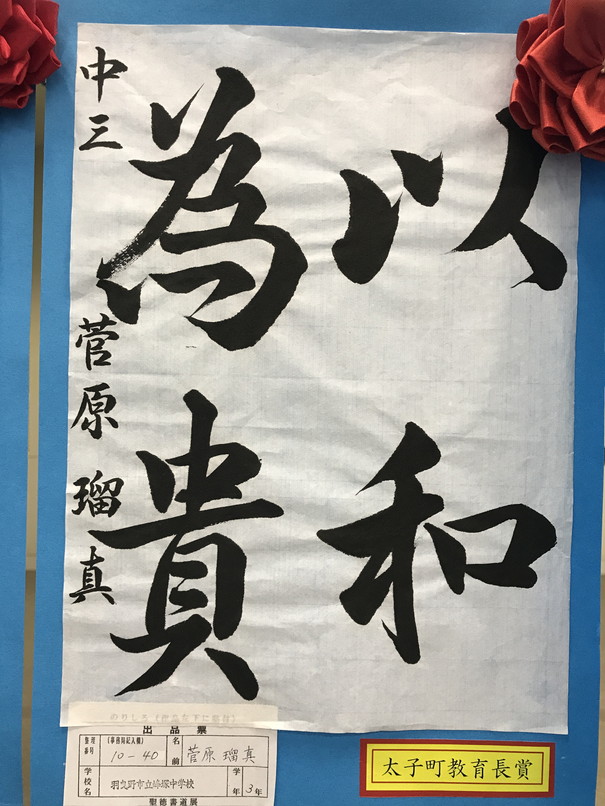 以和
為貴
中三 菅原瑠真
のりしろ(作品の下に貼付)
出品票
整理番号 (事務局記入欄) 10-40 名前 菅原瑠真
学校名 羽曳野市立峰塚中学校 学年 3年
聖徳書道展
太子町教育長賞